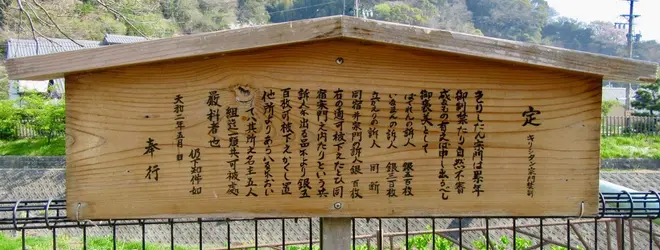 定
キリシタン宗門禁制
きりしたん宗門は累年
御制禁たり自然不審
成もの有之は申し出るべし
御褒美として
はてれんの訴人 銀五百枚
いるまんの訴人 銀三百枚
立かへりの訴人 同断
同宿并宗門の訴人銀百枚
右の通可被下之たとひ同
宿宗門之内たりといふ共
訴人に出る品により銀五
百枚可被下之かくし置
他所よりあらはるゝにおい
ては其所之名主五人
組迄一類共可被処
厳科者也
仍下知件如
天和二年五月日
奉行